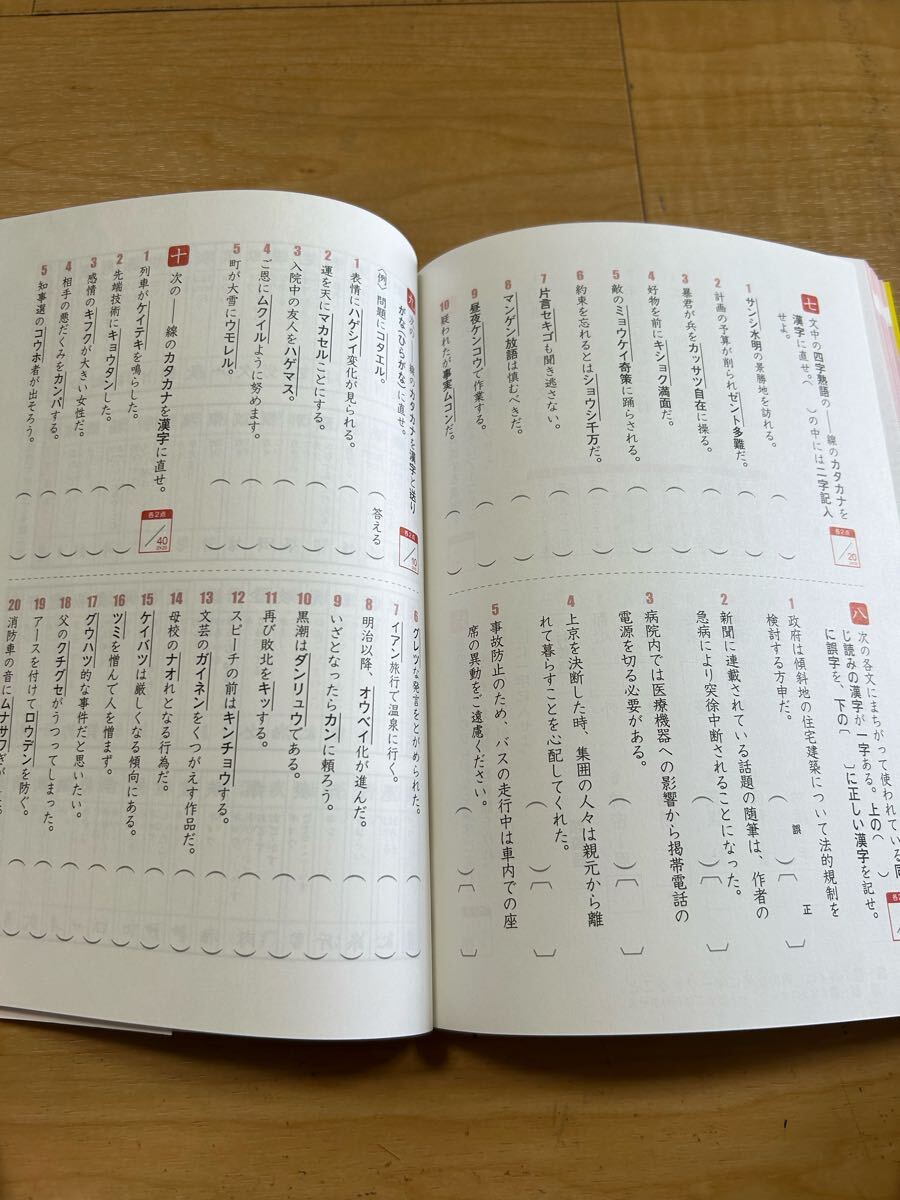 七
文中の四字熟語の――線のカタカナを
漢字に直せ。( )の中には二字記入
せよ。
各2点
20
2×10
1 サンシ水明の景勝地を訪れる。
2 計画の予算が削られゼント多難だ。
3 暴君が兵をカッサツ自在に操る。
4 好物を前にキショク満面だ。
5 敵のミョウケイ奇策に踊らされる。
6 約束を忘れるとはショウシ千万だ。
7 片言セキゴも聞き逃さない。
8 マンゲン放語は慎むべきだ。
9 昼夜ケンコウで作業する。
10 疑われたが事実ムコンだ。
八
次の各文にまちがって使われている同
じ読みの漢字が一字ある。上の( )
に誤字を、下の〔 〕に正しい漢字を記せ。
誤 正
1 政府は傾斜地の住宅建築について法的規制を
検討する方申だ。
2 新聞に連載されている話題の随筆は、作者の
急病により突徐中断されることになった。
3 病院内では医療機器への影響から掲帯電話の
電源を切る必要がある。
4 上京を決断した時、集囲の人々は親元から離
れて暮らすことを心配してくれた。
5 事故防止のため、バスの走行中は車内での座
席の異動をご遠慮ください。
九
次の――線のカタカナを漢字と送り
がな(ひらがな)に直せ。
各2点
10
〈例〉問題にコタエル。(答える)
1 表情にハゲシイ変化が見られる。
2 運を天にマカセルことにする。
3 入院中の友人をハゲマス。
4 ご恩にムクイルように努めます。
5 町が大雪にウモレル。
十
次の――線のカタカナを漢字に直せ。
各2点
40
2×20
1 列車がケイテキを鳴らした。
2 先端技術にキョウタンした。
3 感情のキフクが大きい女性だ。
4 相手の悪だくみをカンパする。
5 知事選のコウホ者が出そろう。
6 グレツな発言をとがめられた。
7 イアン旅行で温泉に行く。
8 明治以降、オウベイ化が進んだ。
9 いざとなったらカンに頼ろう。
10 黒潮はダンリュウである。
11 再び敗北をキッする。
12 スピーチの前はキンチョウする。
13 文芸のガイネンをくつがえす作品だ。
14 母校のナオれとなる行為だ。
15 ケイバツは厳しくなる傾向にある。
16 ツミを憎んで人を憎まず。
17 グウハツ的な事件だと思いたい。
18 父のクチグセがうつってしまった。
19 アースを付けてロウデンを防ぐ。
20 消防車の音にムナサワぎが